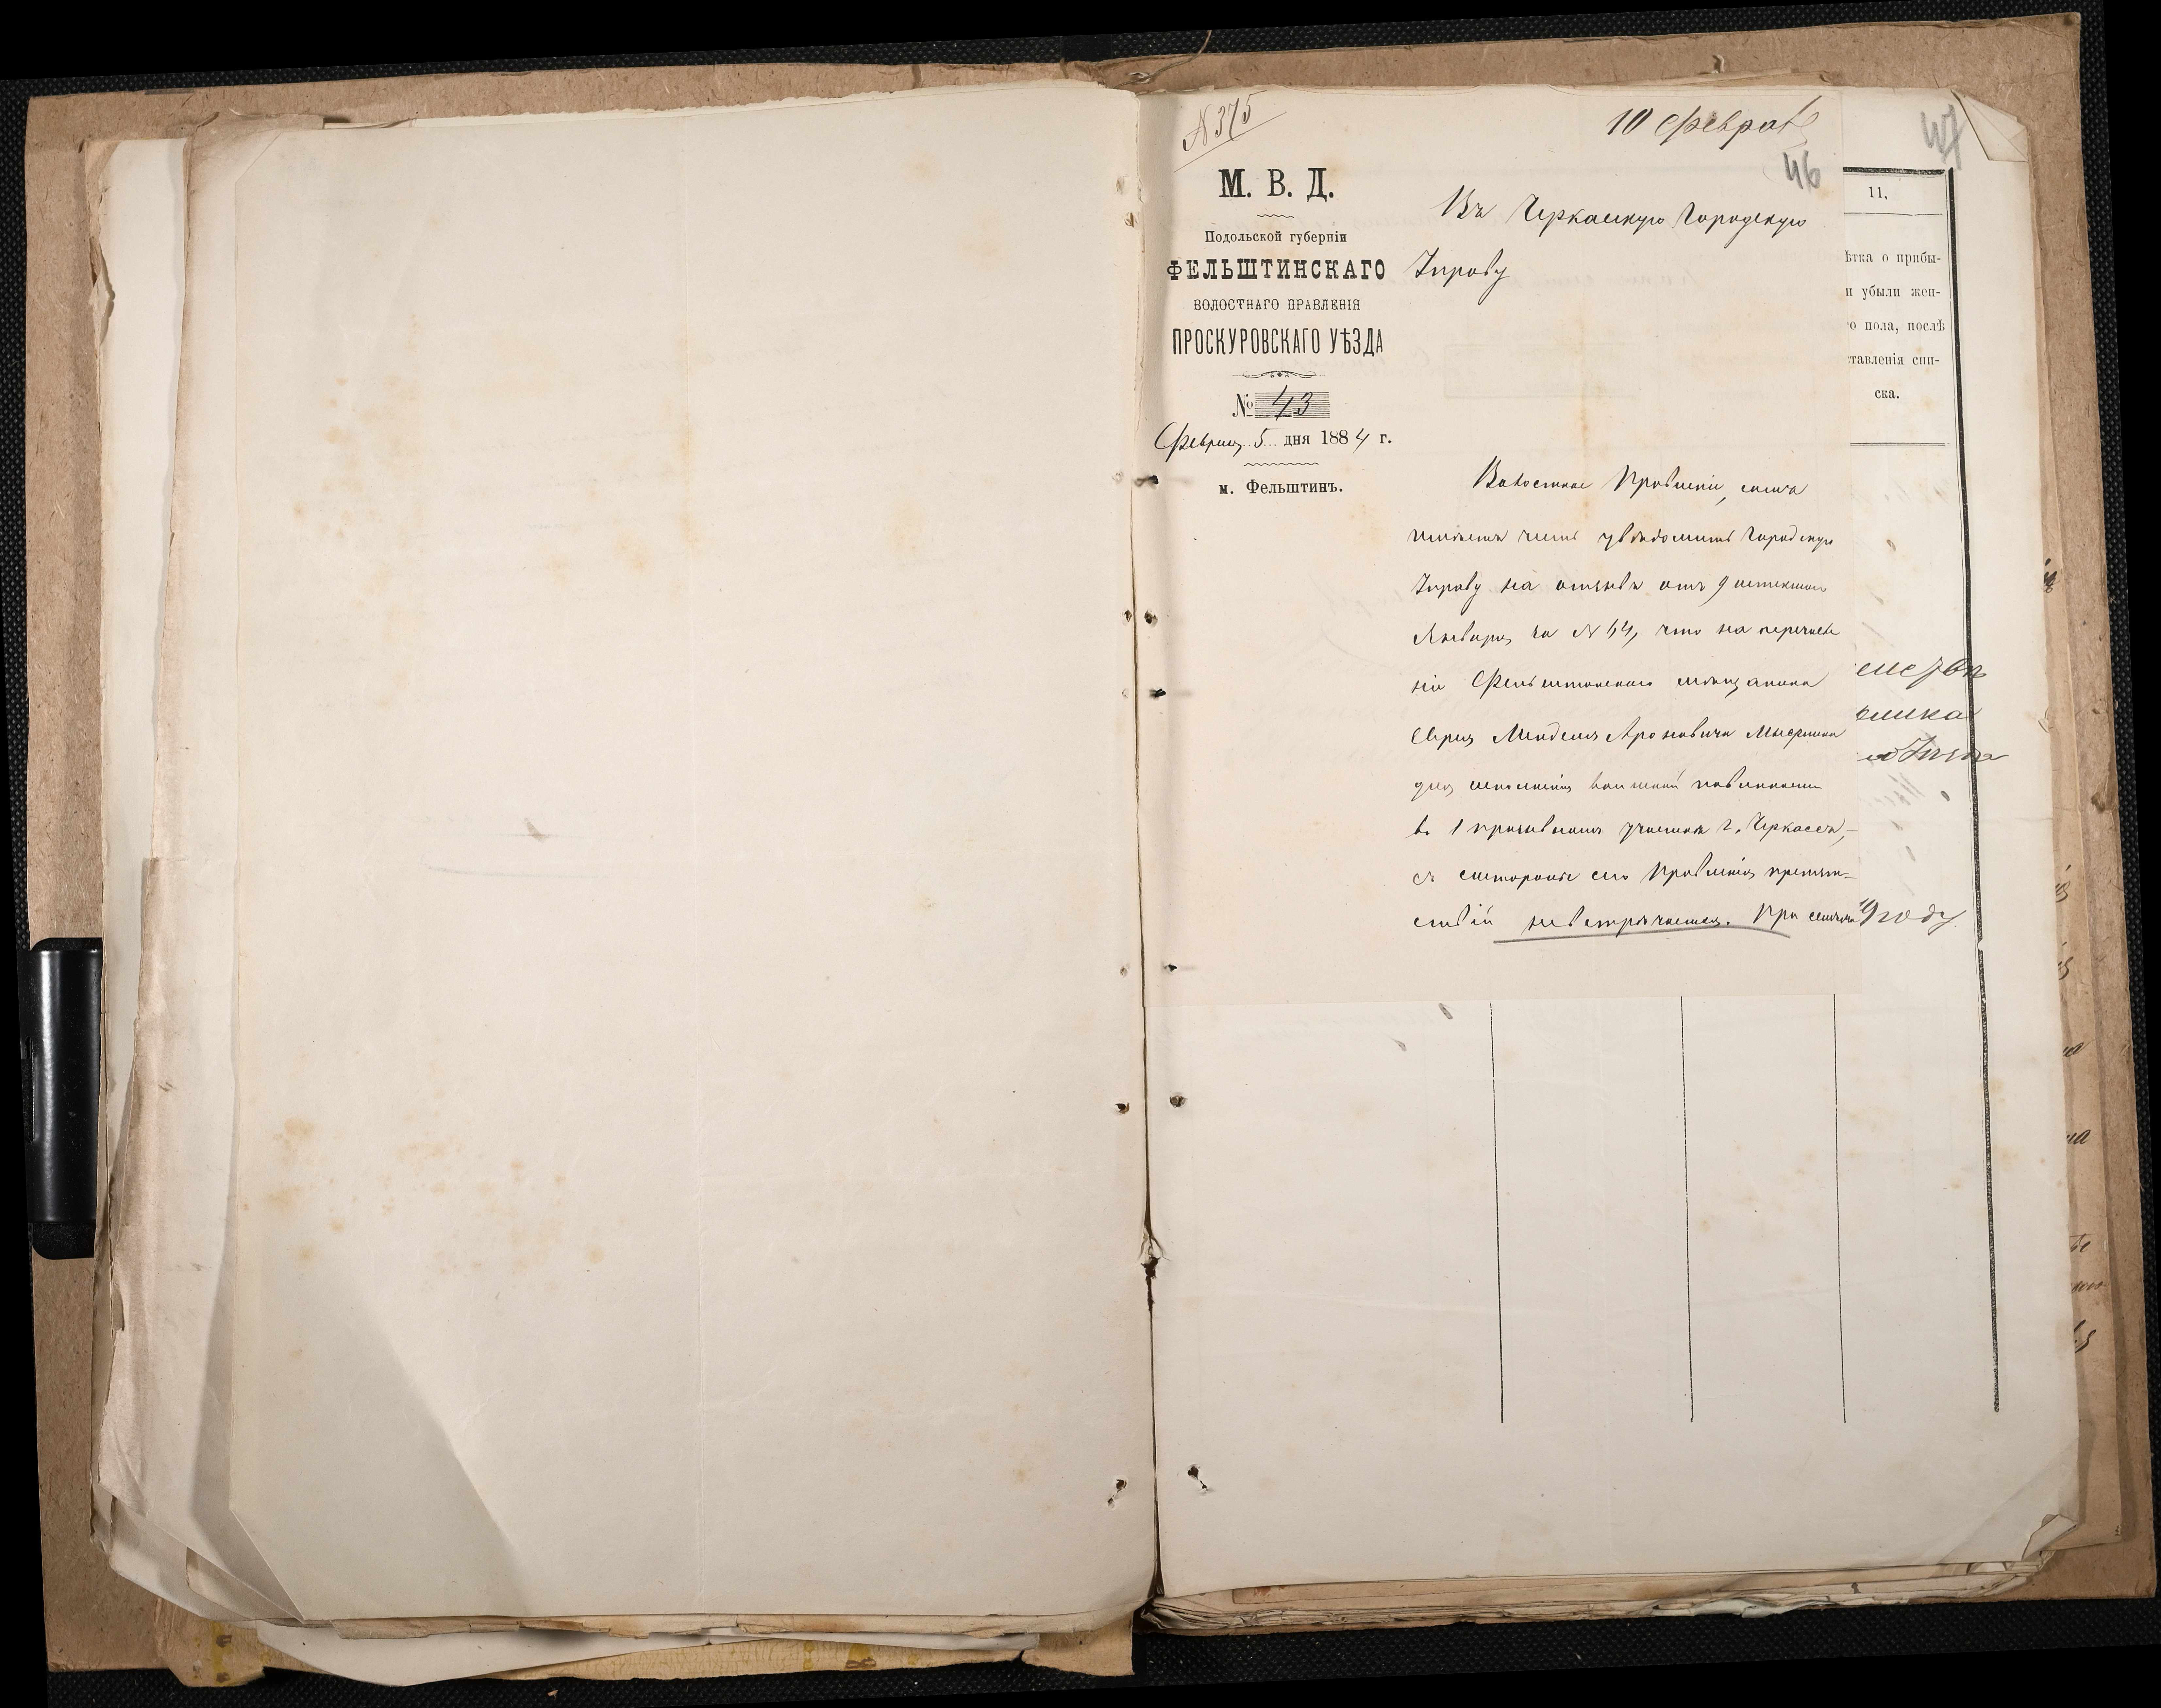 N 375
10 Феврал
46
47
М. В. Д.
Подольской губерніи
ФЕЛЬШТИНСКАГО
ВОЛОСТНАГО ПРАВЛЕНІЯ
ПРОСКУРОВСКАГО УѢЗДА
№ 43
Февраля 5 дня 1884 г.
м. Фельштинъ.
Въ Черкаскую Городскую
Управу
Волостное Правленіе, симъ
имѣетъ честь увѣдомить Городскую
Управу на отзывъ отъ 9 истекшаго
Января за N 64, что на перечисле
ніе Фельштинскаго мѣщанина
Еврея Менделя Ароновича
для исполненія воинской повинности
въ 1 призывномъ участкѣ г. Черкассъ,
съ стороны сего Правленія препят-
ствій невстрѣчается. При семъ
11.
ѣтка о прибы-
и убыли жен-
о пола, послѣ
тавленія спи-
ска.
году